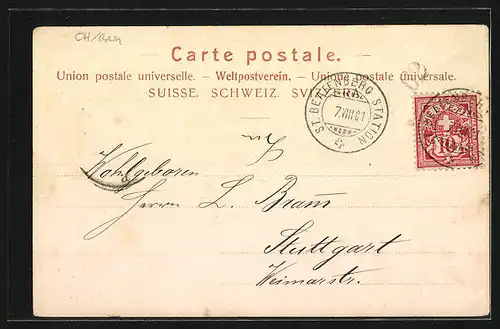 CH/Bern
Carte postale.
Union postale universelle. – Weltpostverein. – Unione postale universale.
SUISSE. SCHWEIZ. SVIZZERA.
ST. BEATENBERG STATION
7.VIII.01
10
Wohlgeboren
Herrn L. Braun
Stuttgart
Weimarstr.